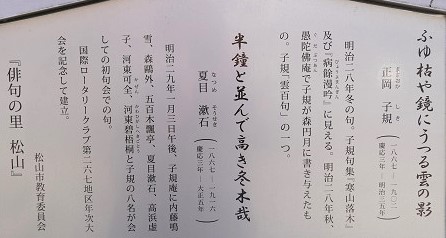 ふゆ枯や鏡にうつる雲の影
正岡 子規
まさおか しき
(一八六七―一九〇二
慶応三年―明治三五年)
明治二八年冬の句。子規句集『寒山落木』
及び『病餘漫吟』に見える。明治二八年秋、
愚陀佛庵で子規が森円月に書き与えたも
の。子規「雲百句」の一つ。
半鐘と並んで高き冬木哉
夏目 漱石
なつめ そうせき
(一八六七―一九一六
慶応三年―大正五年)
明治二九年一月三日午後、子規庵に内藤鳴
雪、森鷗外、五百木飄亭、夏目漱石、高浜虚
子、河東可全、河東碧梧桐と子規の八名が会
しての初句会での句。
国際ロータリークラブ第二六七地区年次大
会を記念して建立。
松山市教育委員会
『俳句の里 松山』